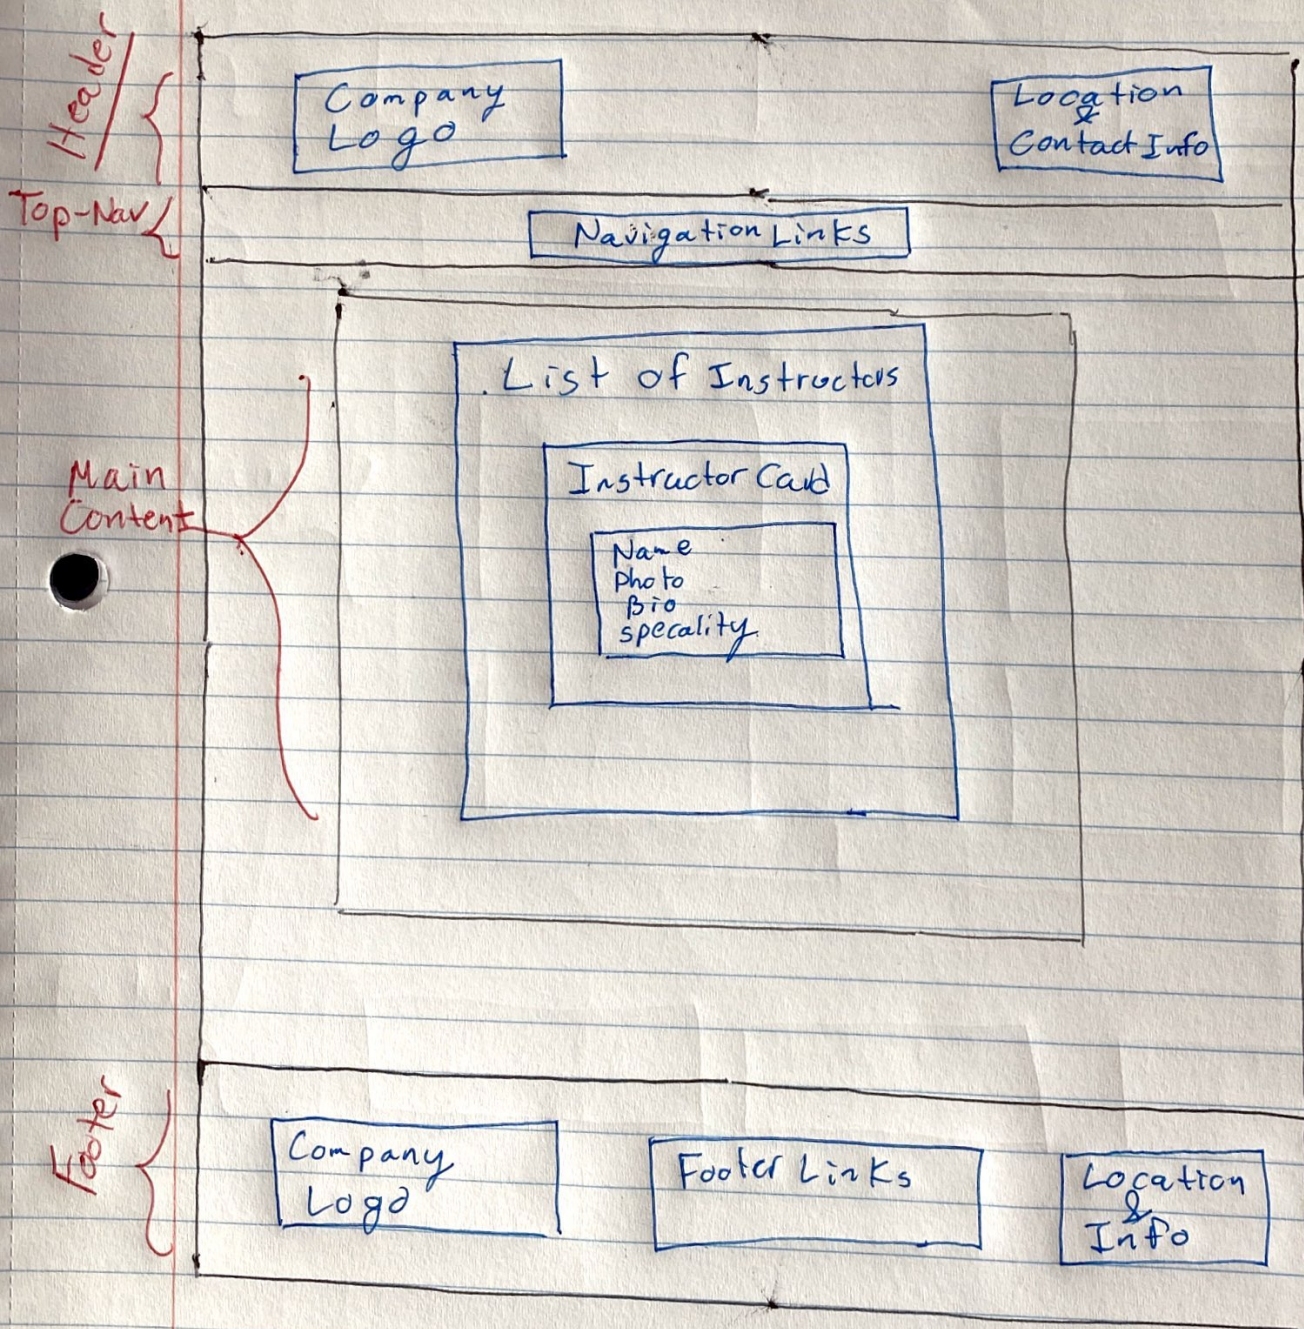 Header
Company
Logo
Location
&
Contact Info
Top-Nav
Navigation Links
Main
Content
List of Instructors
Instructor Card
Name
Photo
Bio
specality
Footer
Company
Logo
Footer Links
Location
&
Info